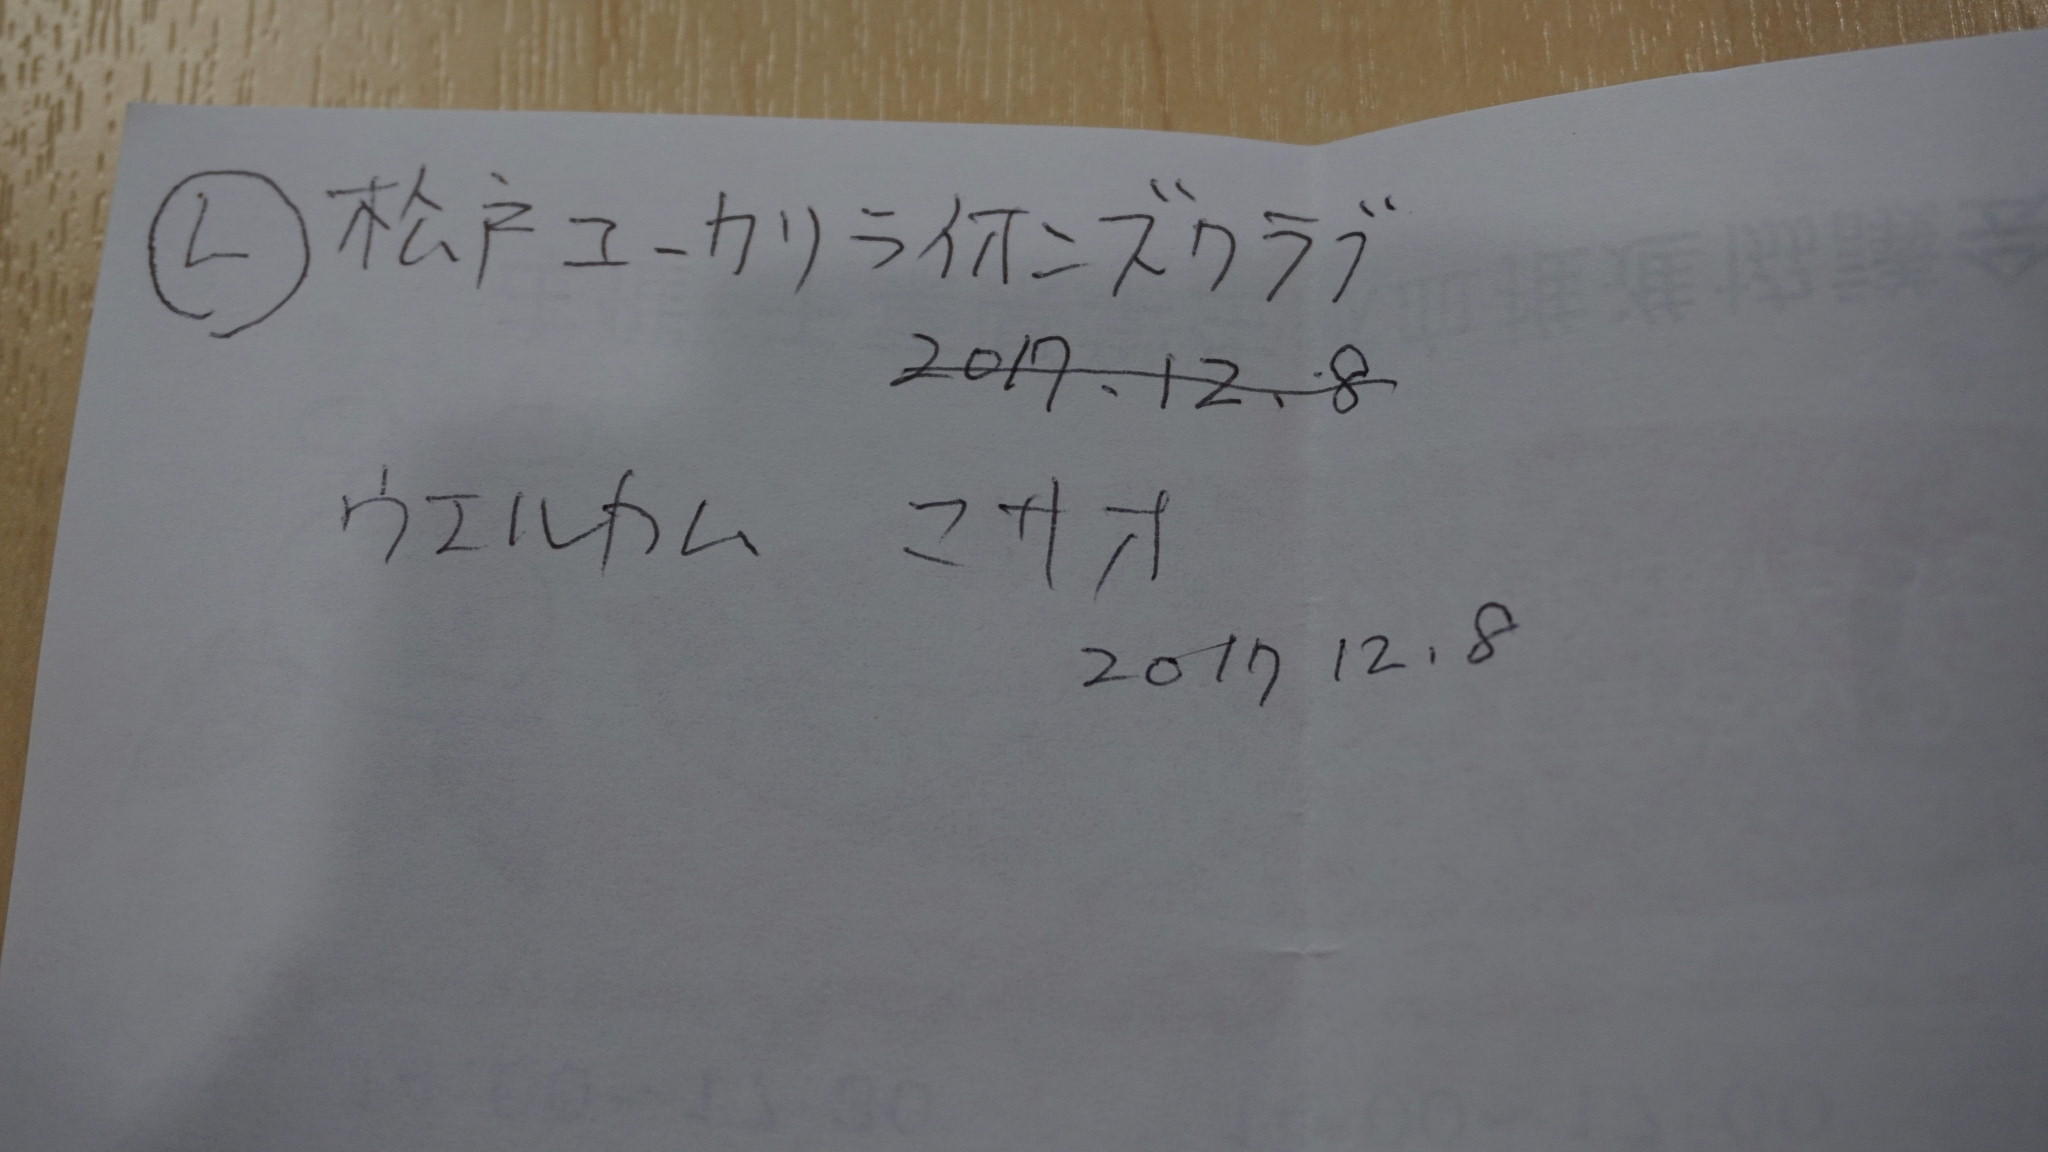 Ⓛ松戸ユーカリライオンズクラブ
2017.12.8
ウエルカム マサオ
2017 12.8